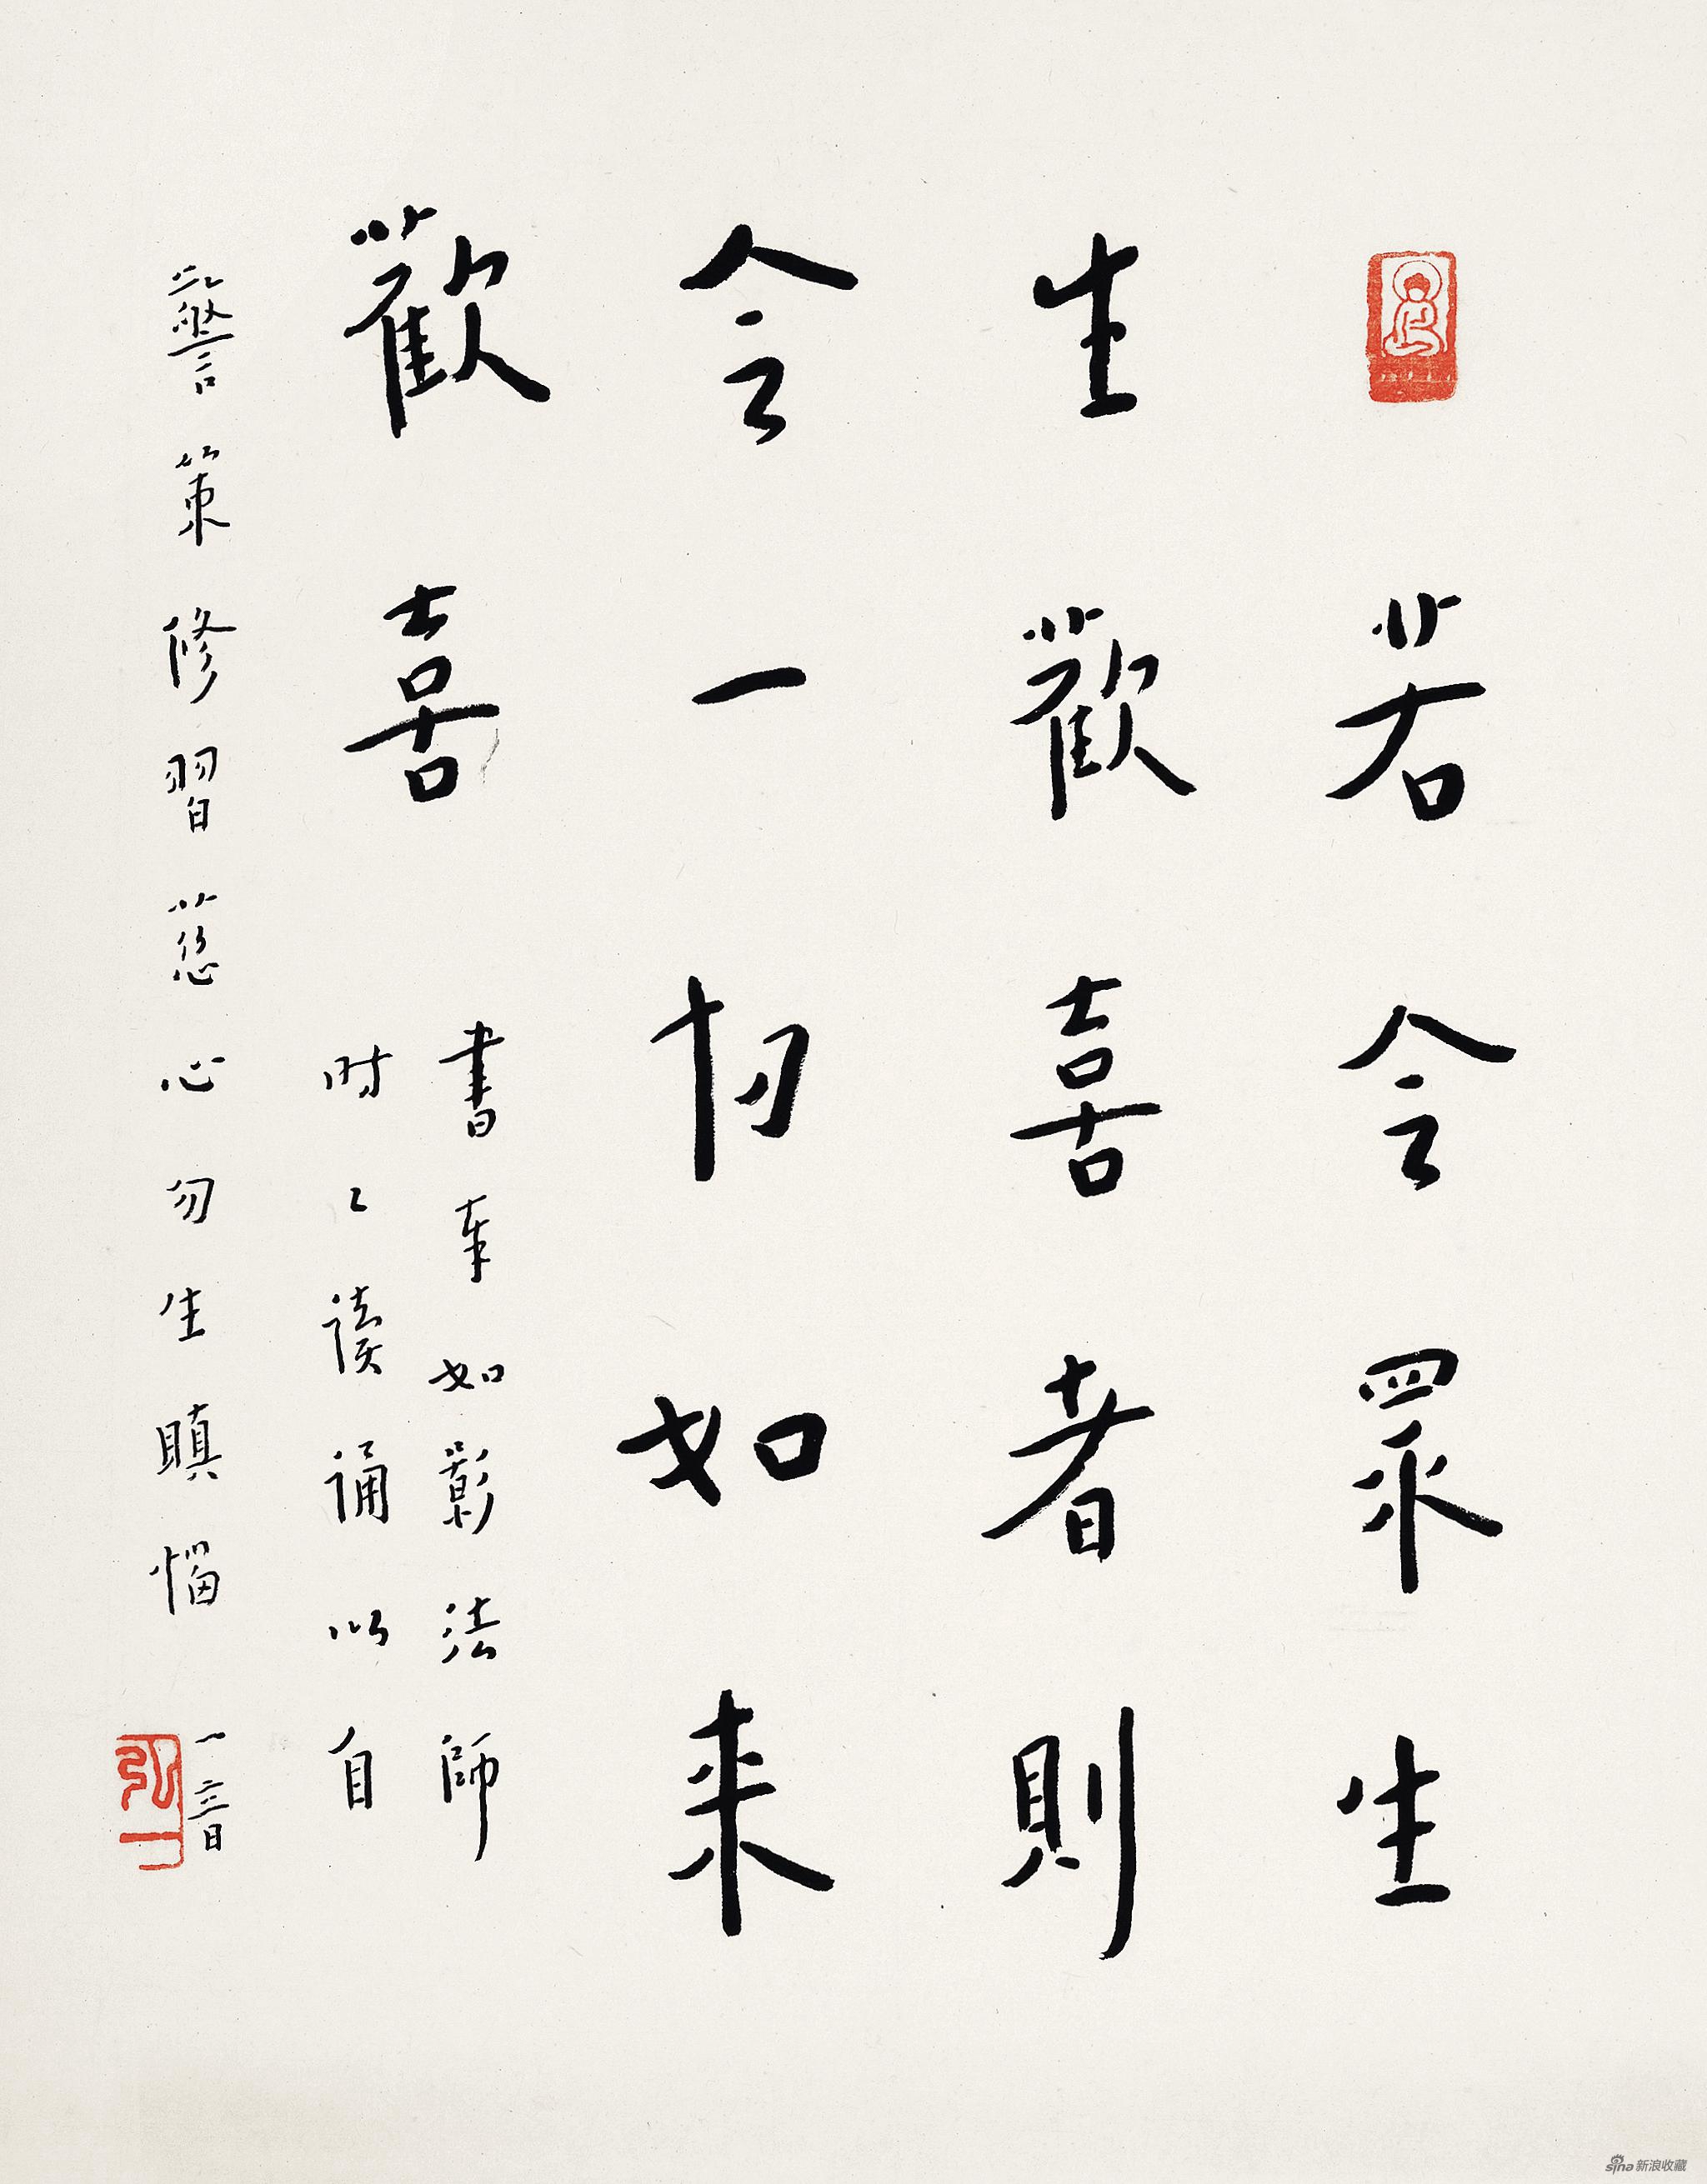 若令眾生
生歡喜者則
令一切如來
歡喜
書奉如影法師
時〻讀誦以自
警策修習慈心勿生瞋惱 一音
弘一
sina 新浪收藏